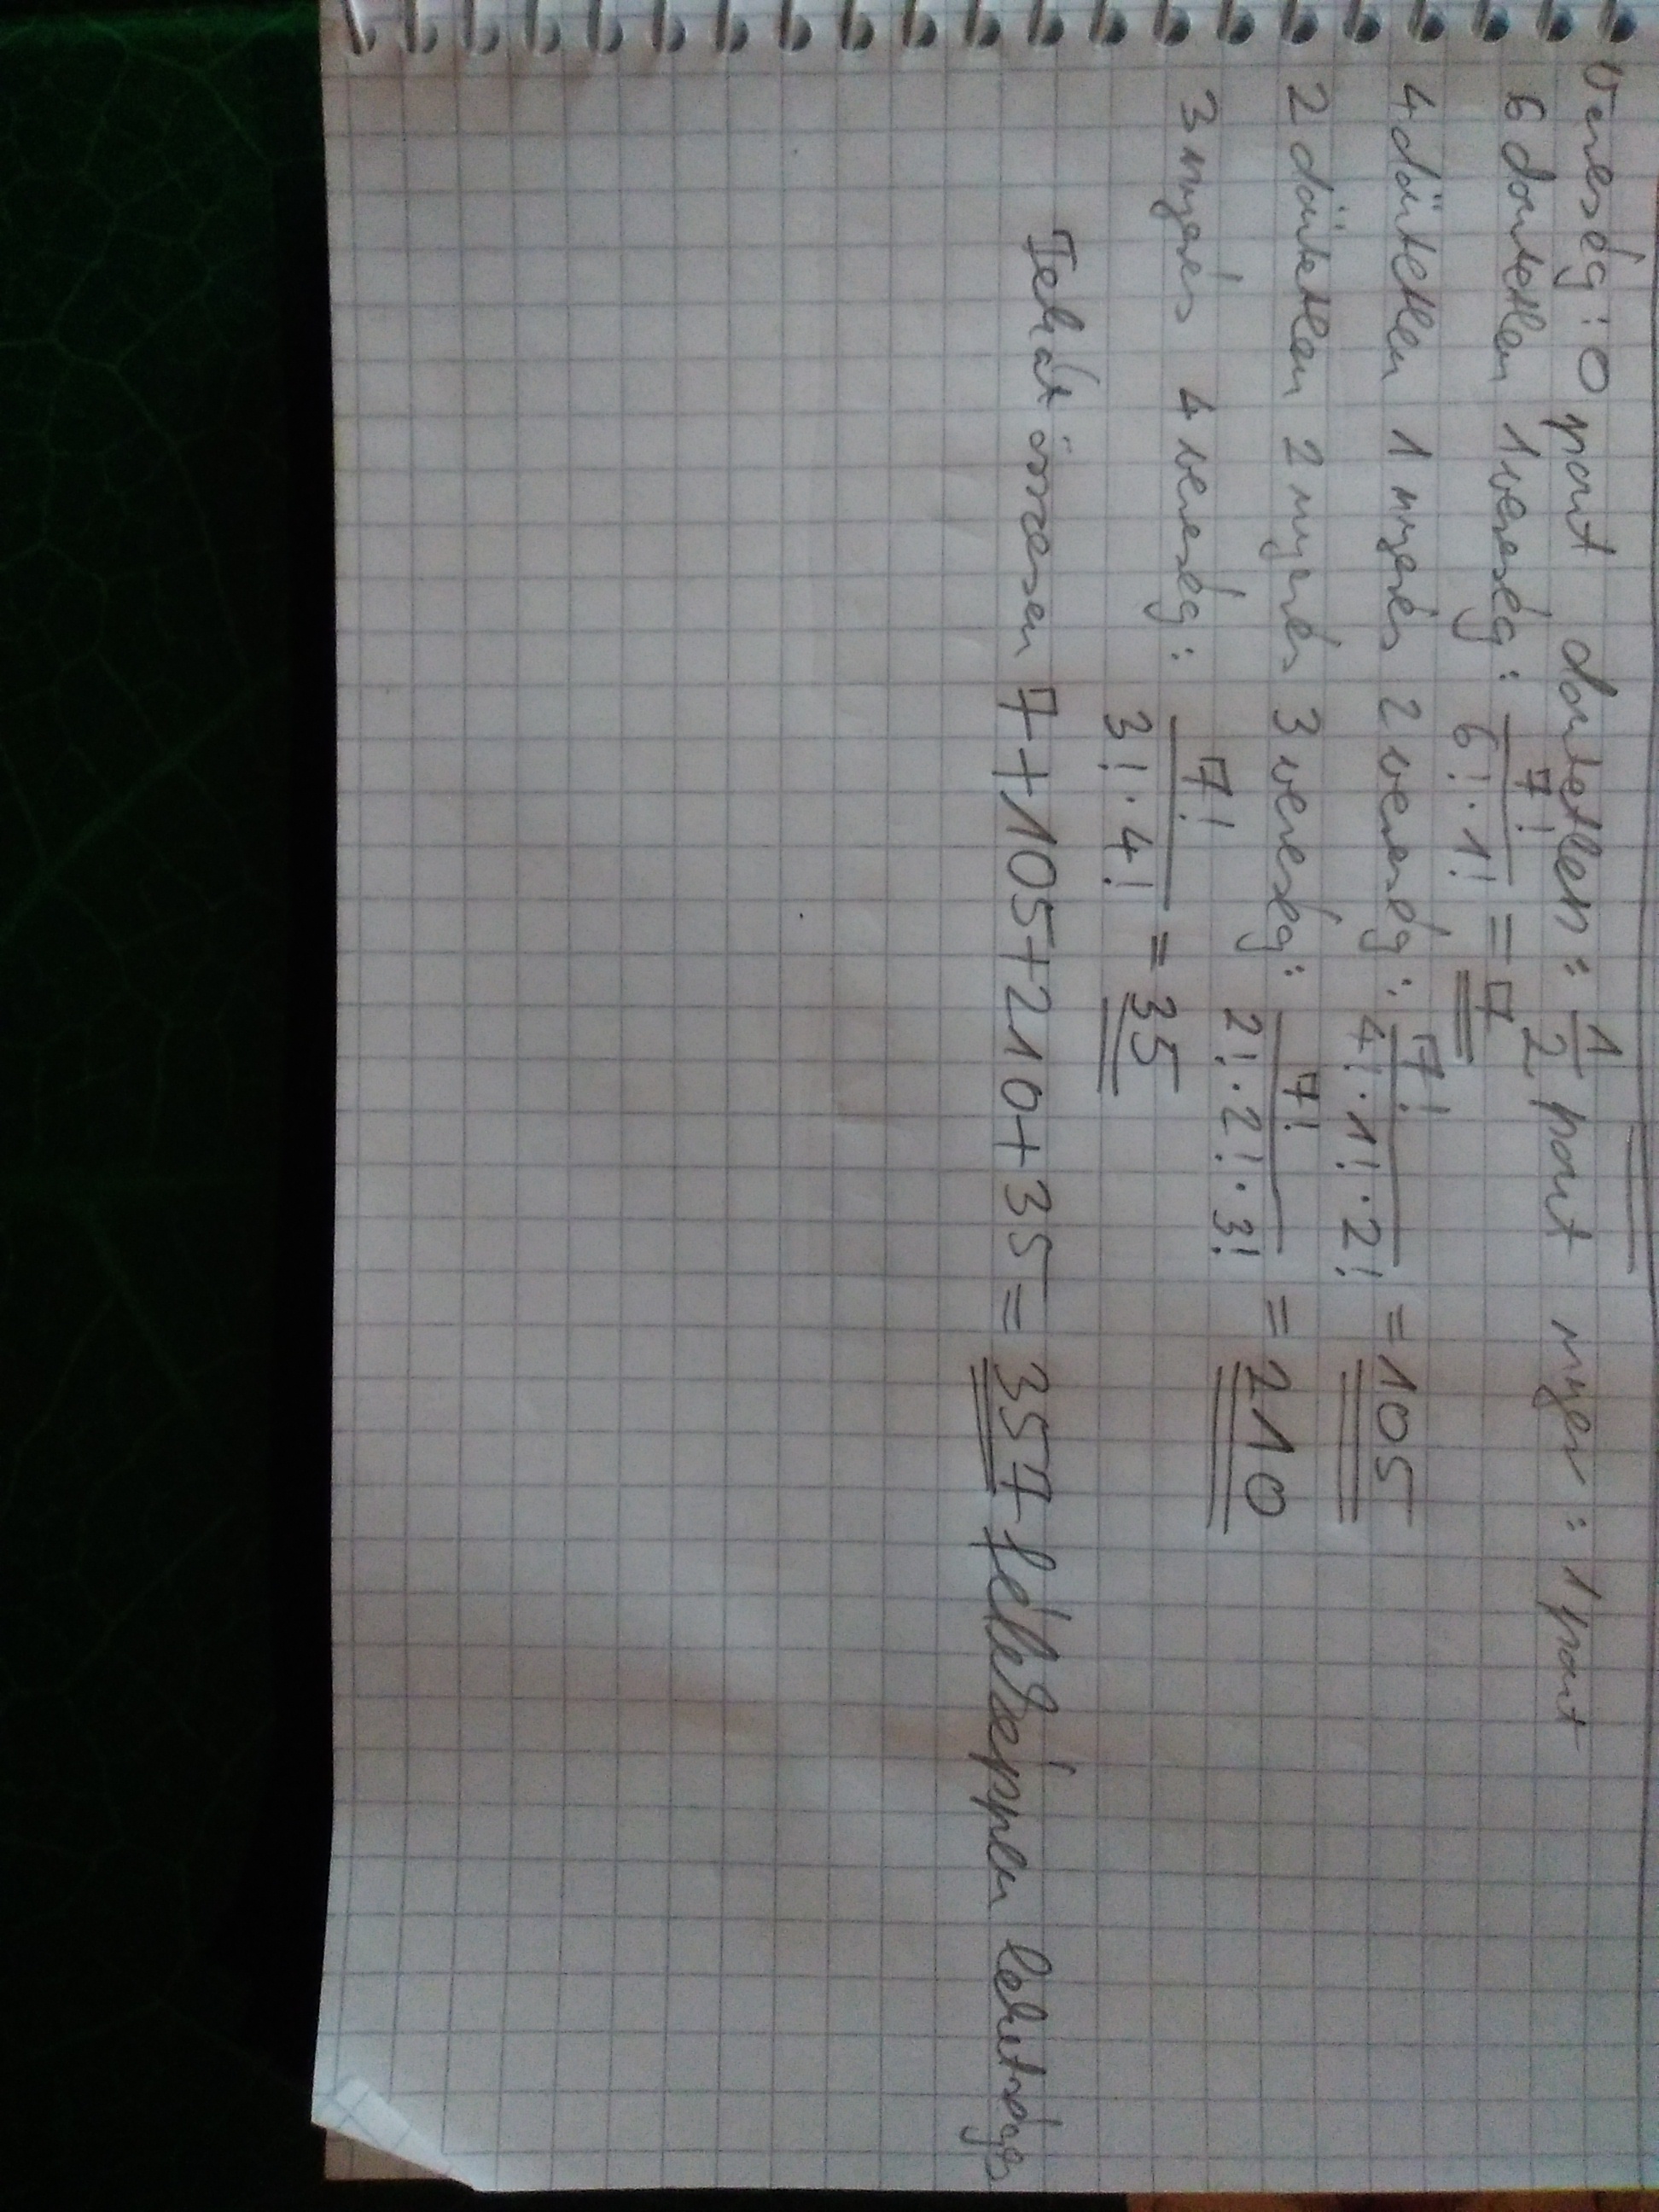 Vereség: 0 pont döntetlen: 1/2 pont nyer: 1 pont
6 döntetlen 1 vereség: 7!/(6!·1!) = 7
4 döntetlen 1 nyerés 2 vereség: 7!/(4!·1!·2!) = 105
2 döntetlen 2 nyerés 3 vereség: 7!/(2!·2!·3!) = 210
3 nyerés 4 vereség: 7!/(3!·4!) = 35
Tehát összesen 7+105+210+35 = 357 féleképpen lehetséges